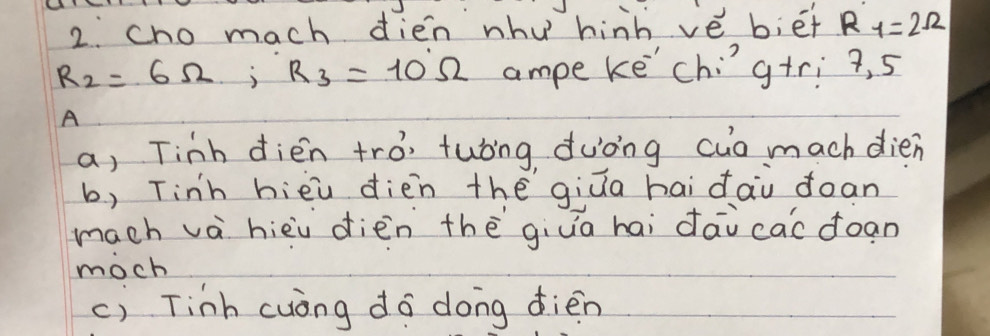 2. Cho mạch điện như hình vẽ biết R1=2Ω
R2 = 6Ω ; R3 = 10Ω ampe kế chỉ gtrị 7,5
A
a, Tính điện trở tương đương của mạch điện
b, Tính hiệu điện thế giữa hai đầu đoạn
mạch và hiệu điện thế giữa hai đầu các đoạn
mạch
c) Tính cường độ dòng điện